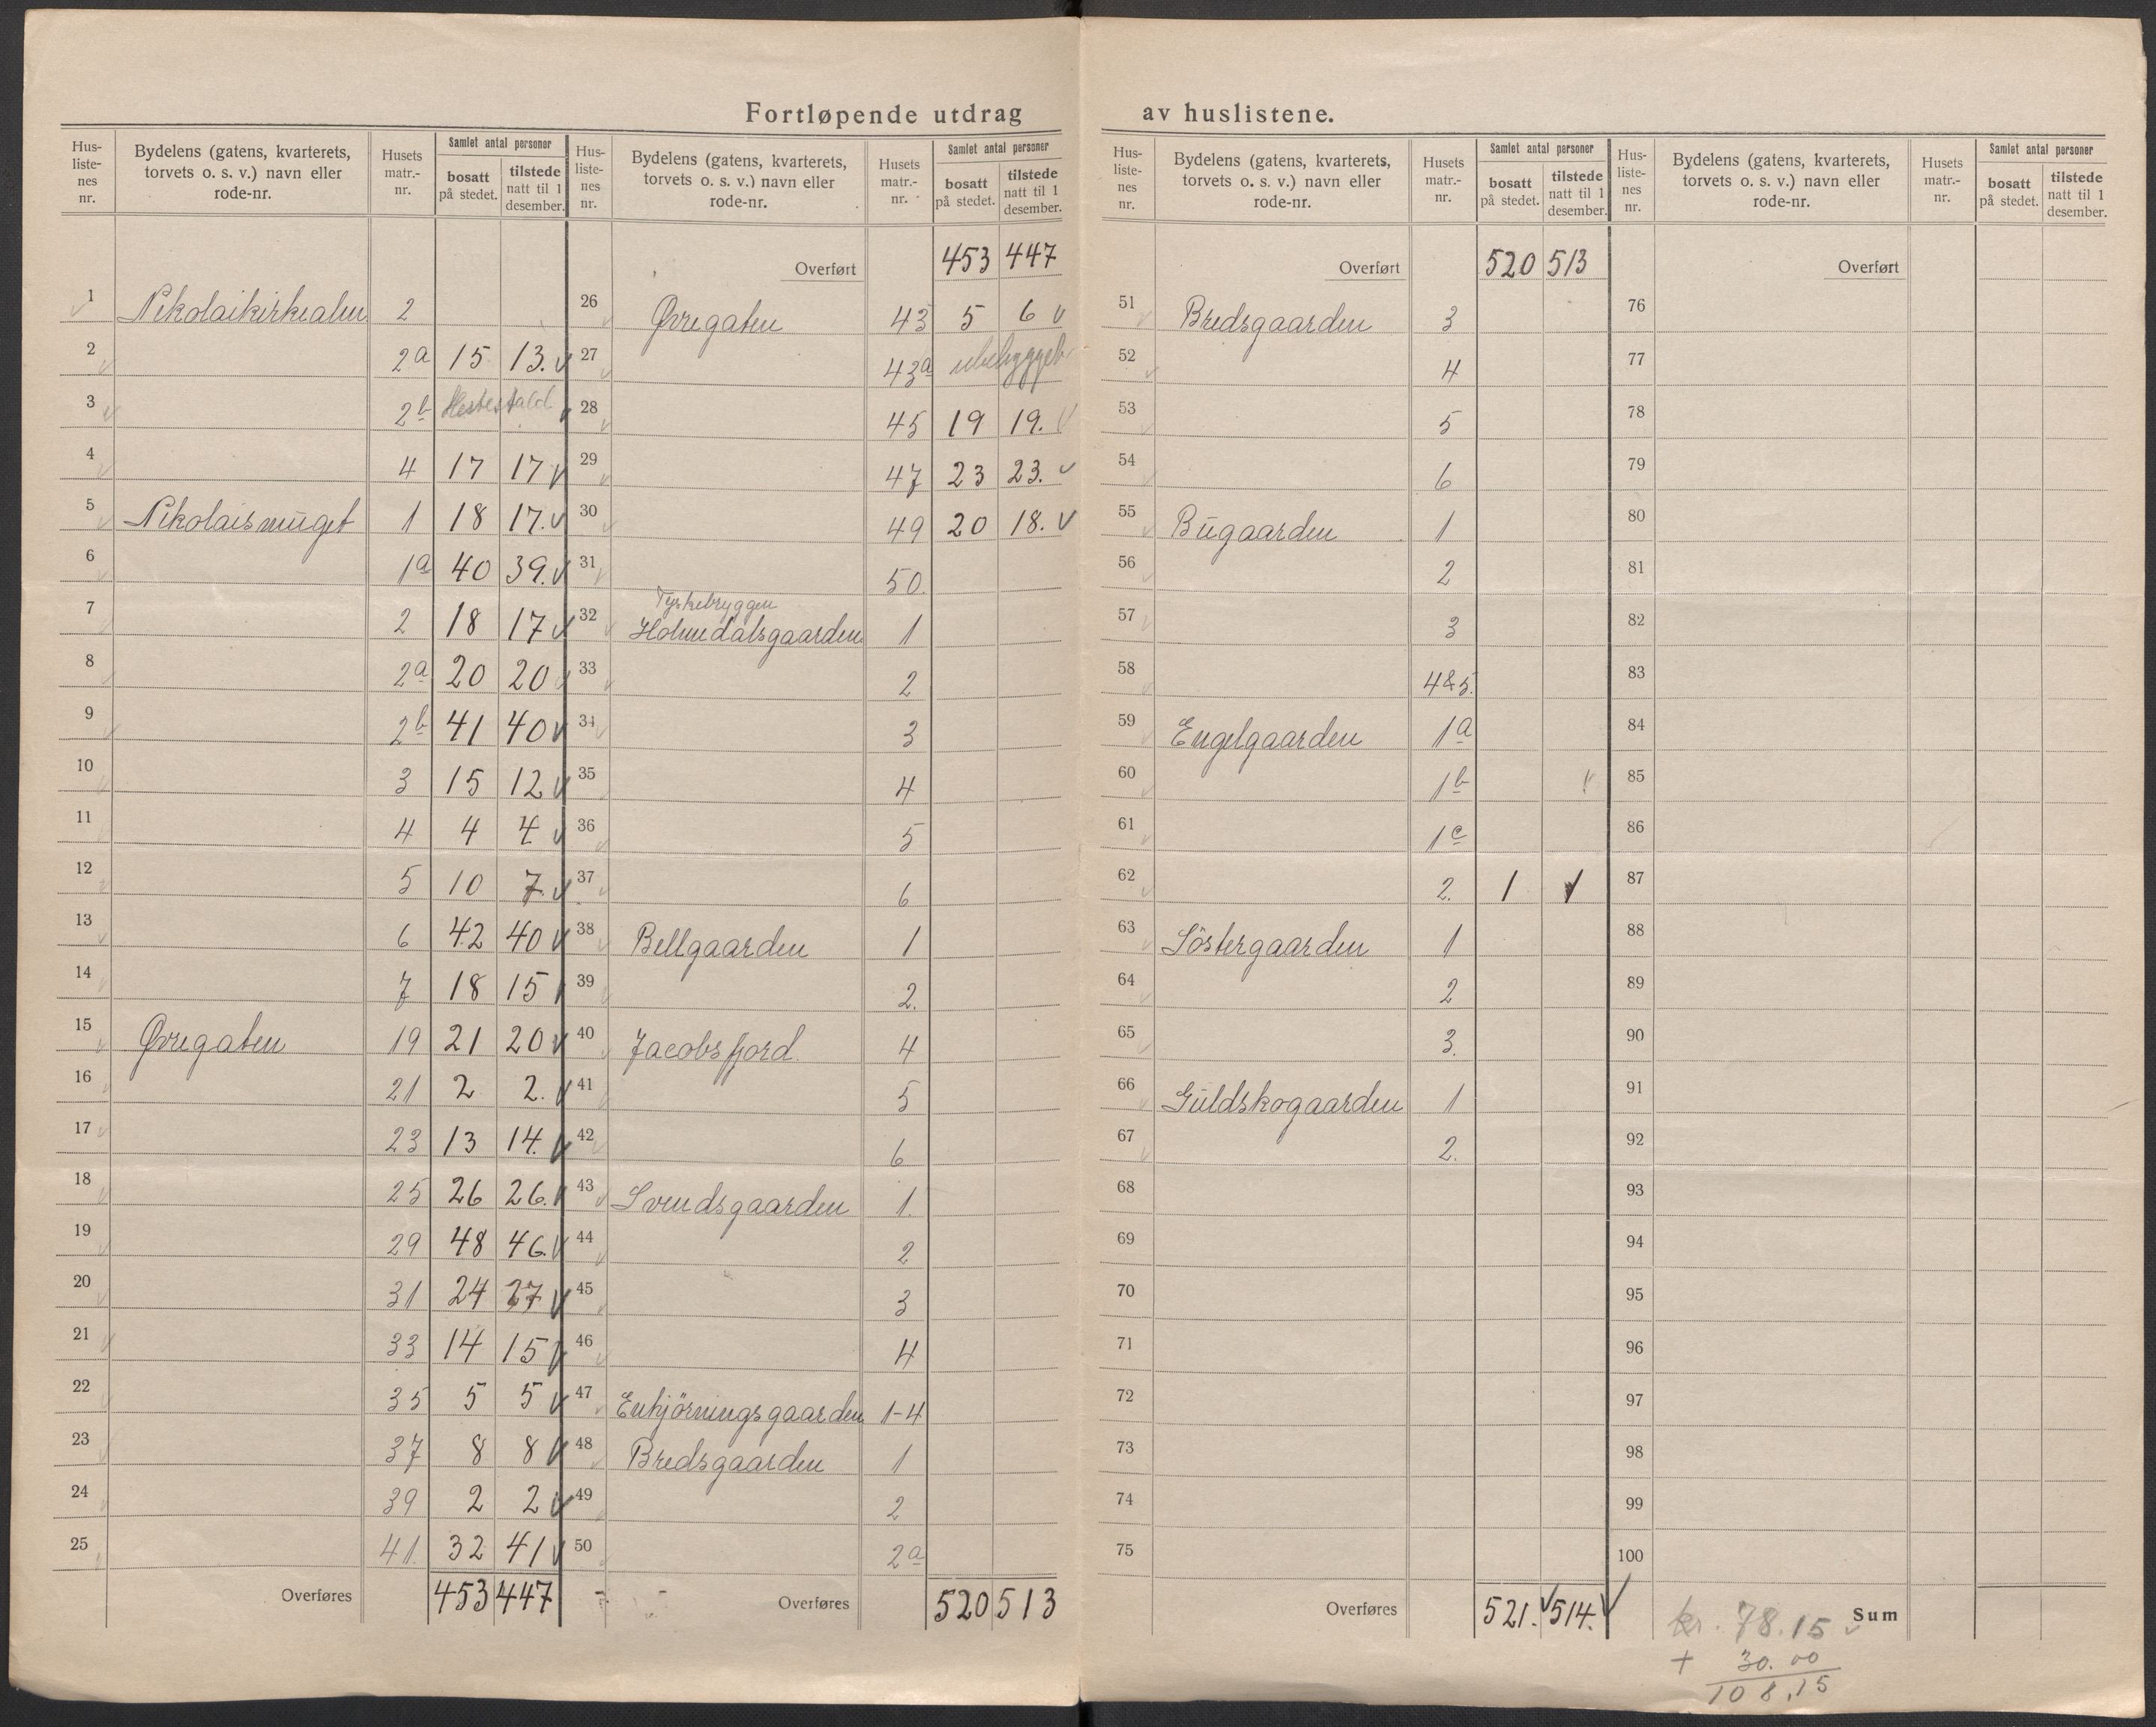 Fortløpende utdrag av huslistene.
Hus-liste-nes nr. Bydelens (gatens, kvarterets, torvets o. s. v.) navn eller rode-nr. Husets matr.-nr. Samlet antal personer bosatt på stedet. tilstede natt til 1 desember.
1 Nikolaikirkealm 2
2 2a 15 13. v
3 2b Hestestald
4 4 17 17 v
5 Nikolaismuget 1 18 17. v
6 1a 40 39. v
7 2 18 17 v
8 2a 20 20
9 2b 41 40 v
10 3 15 12 v
11 4 4 4 v
12 5 10 7. v
13 6 42 40 v
14 7 18 15
15 Øvregaten 19 21 20 v
16 21 2 2. v
17 23 13 14. v
18 25 26 26. v
19 29 48 46. v
20 31 24 27 v
21 33 14 15 v
22 35 5 5 v
23 37 8 8 v
24 39 2 2 v
25 41. 32 41 v
Overføres 453 447
Hus-liste-nes nr. Bydelens (gatens, kvarterets, torvets o. s. v.) navn eller rode-nr. Husets matr.-nr. Samlet antal personer bosatt på stedet. tilstede natt til 1 desember.
Overført 453 447
26 Øvregaten 43 5 6 v
27 43a ubebygget
28 45 19 19. v
29 47 23 23. v
30 49 20 18. v
31 50.
Tyskebryggen
32 Holmedalsgaarden 1
33 2
34 3
35 4
36 5
37 6
38 Bellgaarden 1
39 2.
40 Jacobsfjord 4
41 5
42 6
43 Svendsgaarden 1.
44 2
45 3
46 4
47 Enhjörningsgaarden 1-4
48 Bredsgaarden 1
49 2
50 2a
Overføres 520 513
Hus-liste-nes nr. Bydelens (gatens, kvarterets, torvets o. s. v.) navn eller rode-nr. Husets matr.-nr. Samlet antal personer bosatt på stedet. tilstede natt til 1 desember.
Overført 520 513
51 Bredsgaarden 3
52 4
53 5
54 6
55 Bugaarden 1
56 2
57 3
58 4&5.
59 Engelgaarden 1a
60 1b
61 1c
62 2. 1 1
63 Söstergaarden 1
64 2
65 3.
66 Guldskogaarden 1
67 2.
68
69
70
71
72
73
74
75
Overføres 521. v 514. v
Hus-liste-nes nr. Bydelens (gatens, kvarterets, torvets o. s. v.) navn eller rode-nr. Husets matr.-nr. Samlet antal personer bosatt på stedet. tilstede natt til 1 desember.
Overført
76
77
78
79
80
81
82
83
84
85
86
87
88
89
90
91
92
93
94
95
96
97
98
99
100
kr. 78.15 v Sum
+ 30.00
108,15